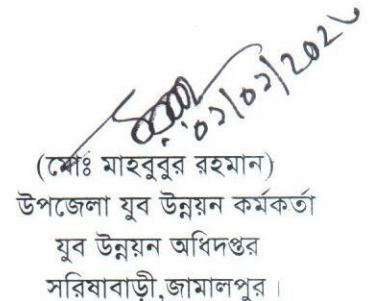 ০১/০১/২০২৬
(মোঃ মাহবুবুর রহমান)
উপজেলা যুব উন্নয়ন কর্মকর্তা
যুব উন্নয়ন অধিদপ্তর
সরিষাবাড়ী,জামালপুর।